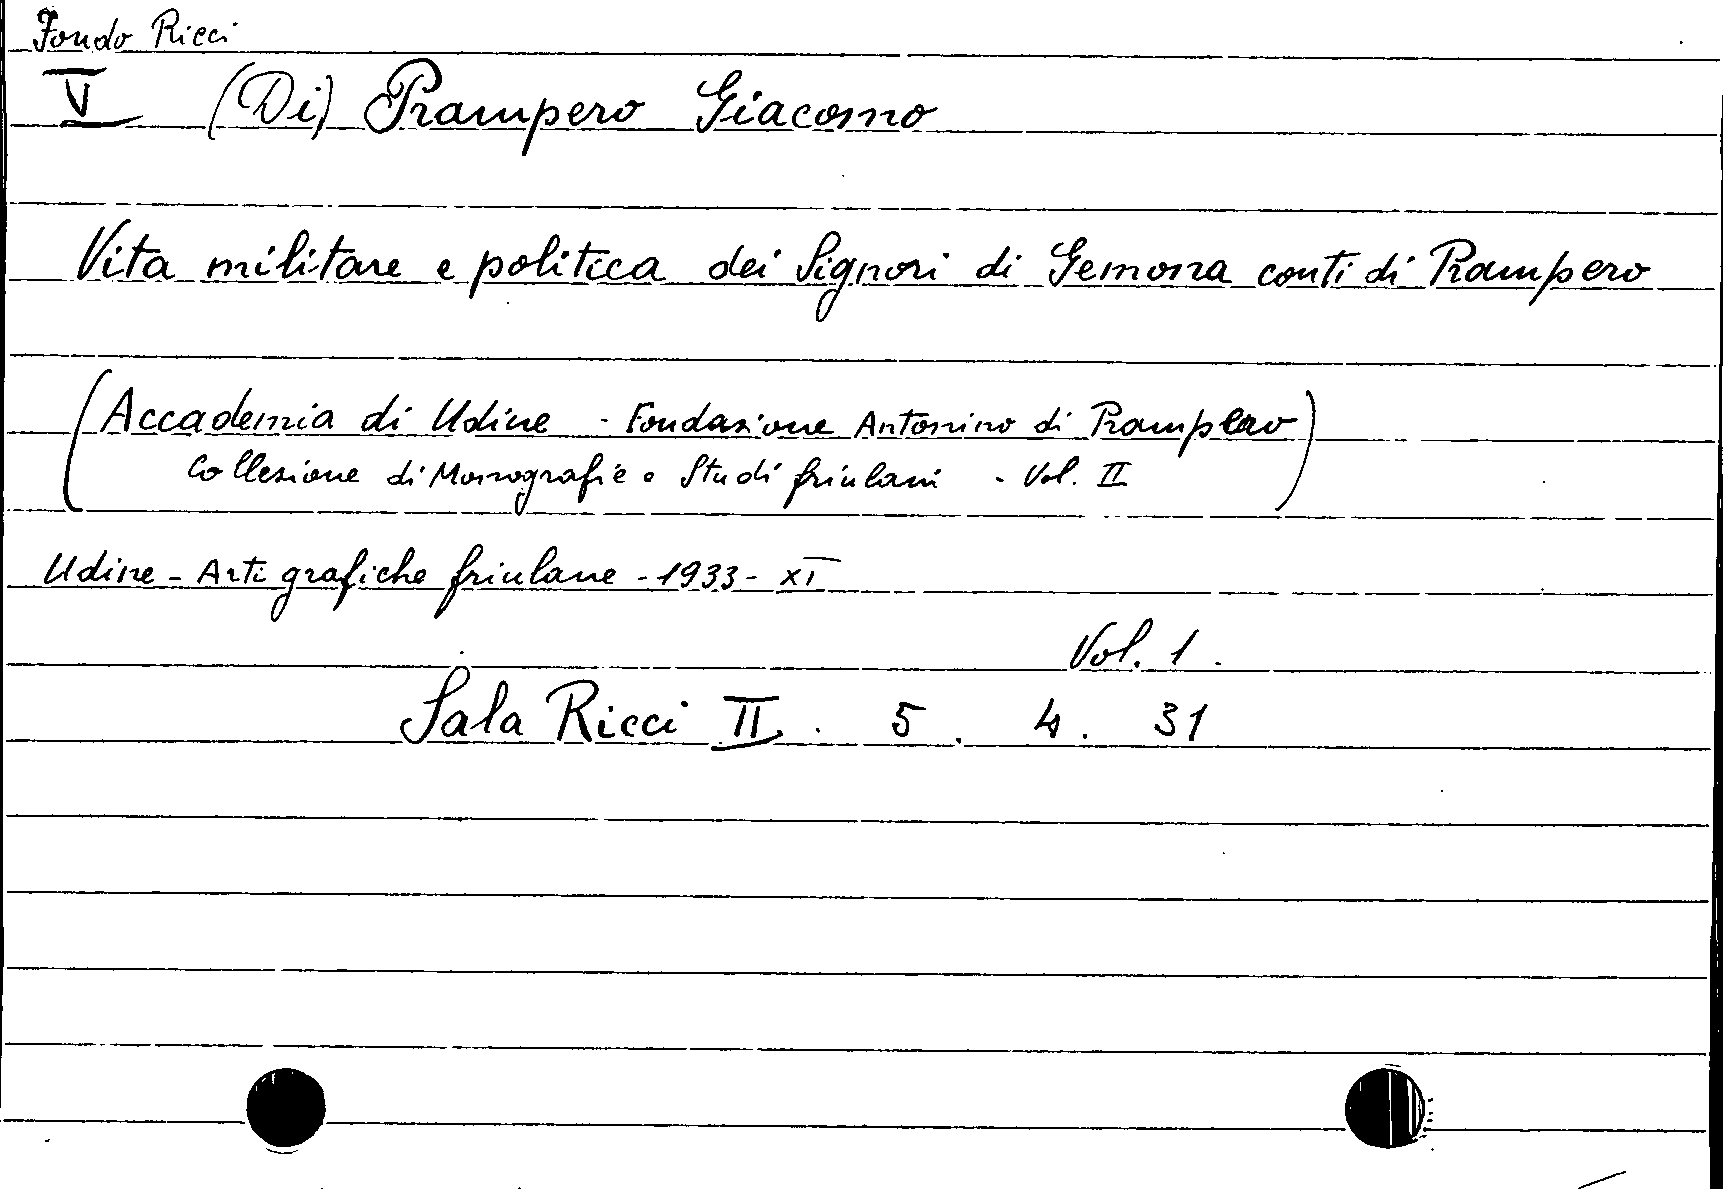 Fondo Ricci
V (Di) Prampero Giacomo
Vita militare e politica dei Signori di Gemona conti di Prampero
(Accademia di Udine - Fondazione Antonino di Prampero
Collezione di Monografie e Studi friulani - Vol. II)
Udine - Arti grafiche friulane - 1933 - XI
Vol. 1.
Sala Ricci II . 5 . 4 . 31